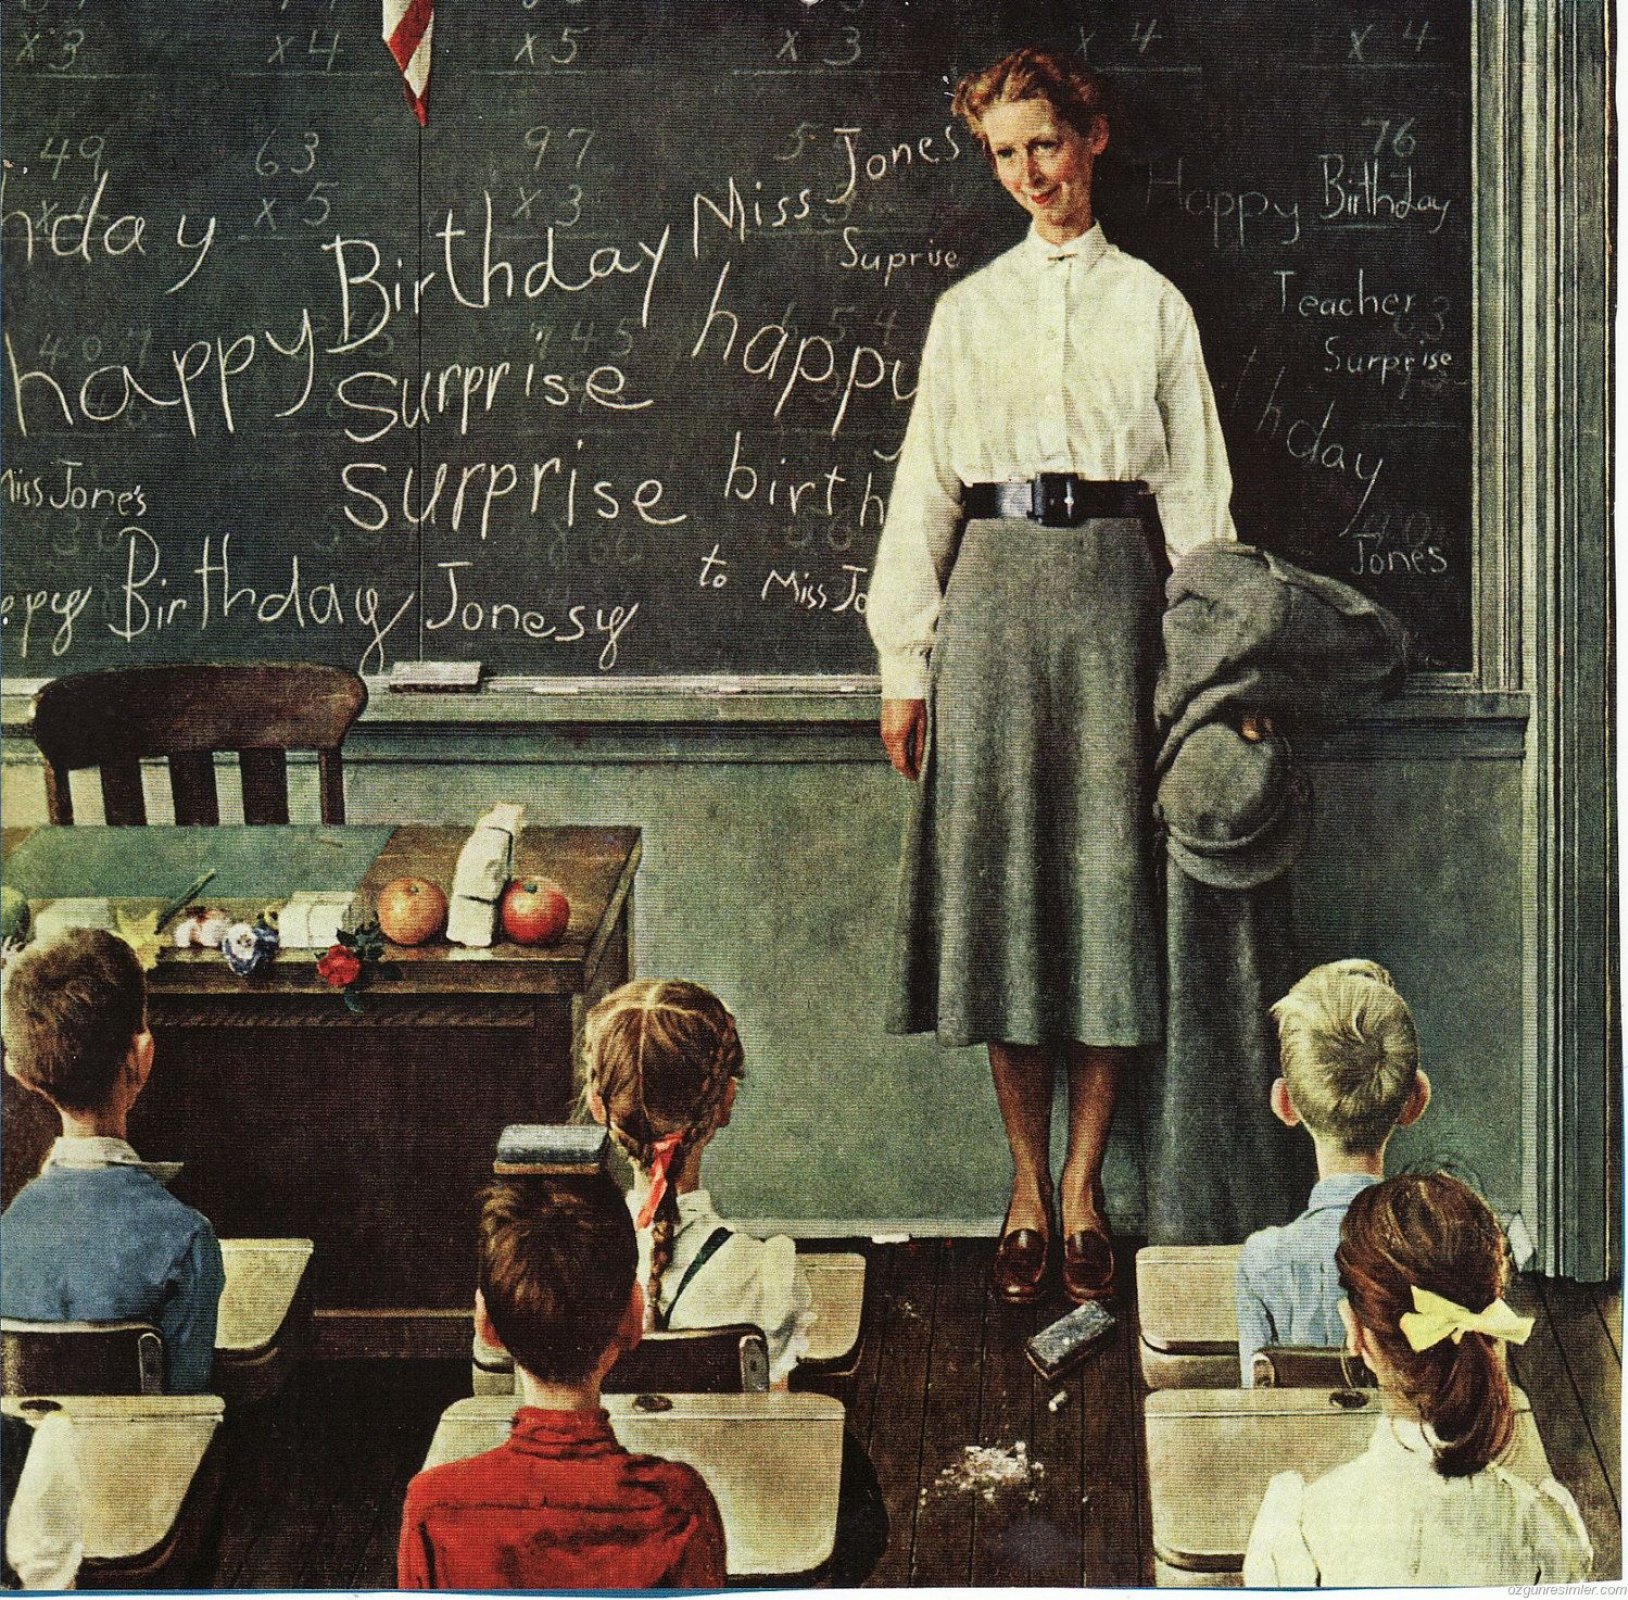 x 3 x 4 x 5 x 3 x 4 x 4
49 63 97 76
x 5 x 3
Jones
Miss
Happy Birthday
hday
Birthday
Suprise
Teacher
happy
Surprise
happy
Surprise
hday
Miss Jone's
Surprise
birth
Jones
ppy Birthday Jonesy
to Miss Jo
ozgunresimler.com